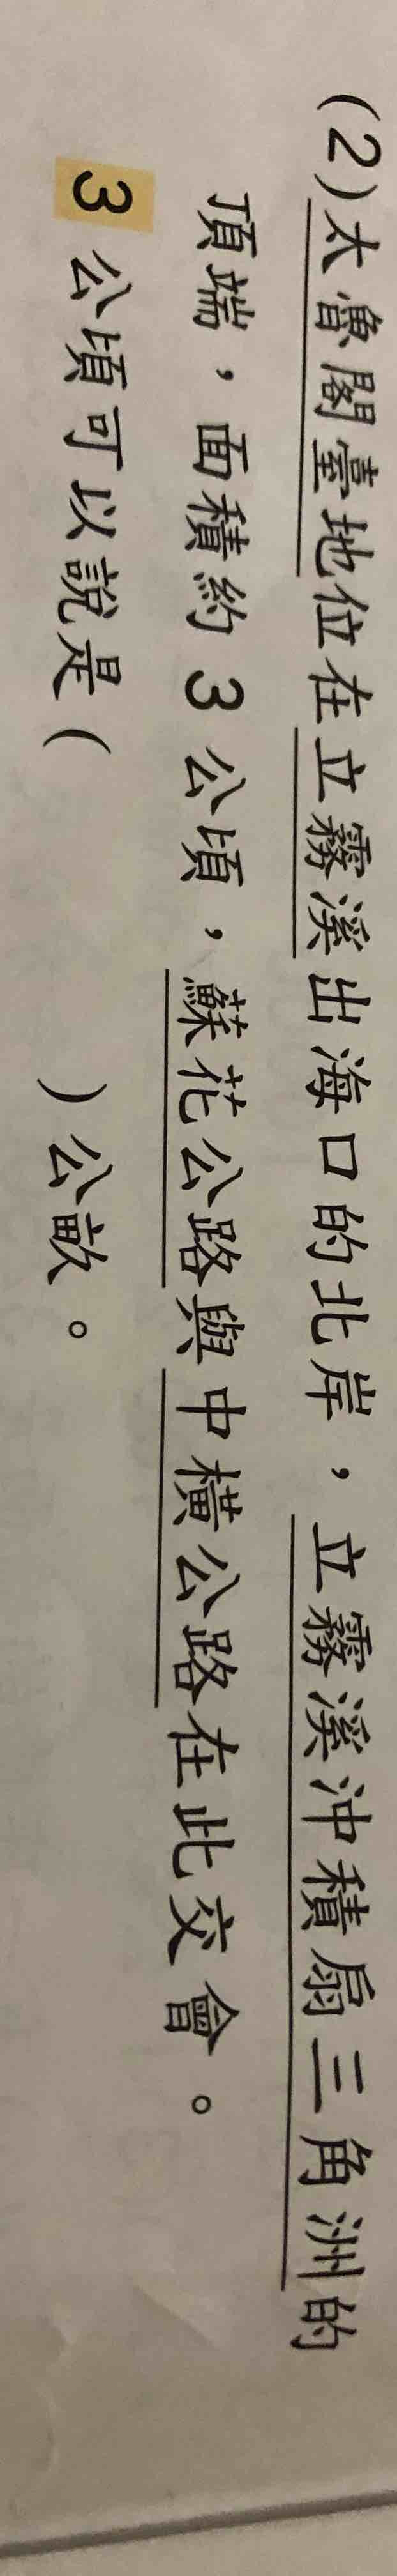 (2)太魯閣臺地位在立霧溪出海口的北岸，立霧溪沖積扇三角洲的
頂端，面積約3公頃，蘇花公路與中橫公路在此交會。
3公頃可以說是(　　　　)公畝。